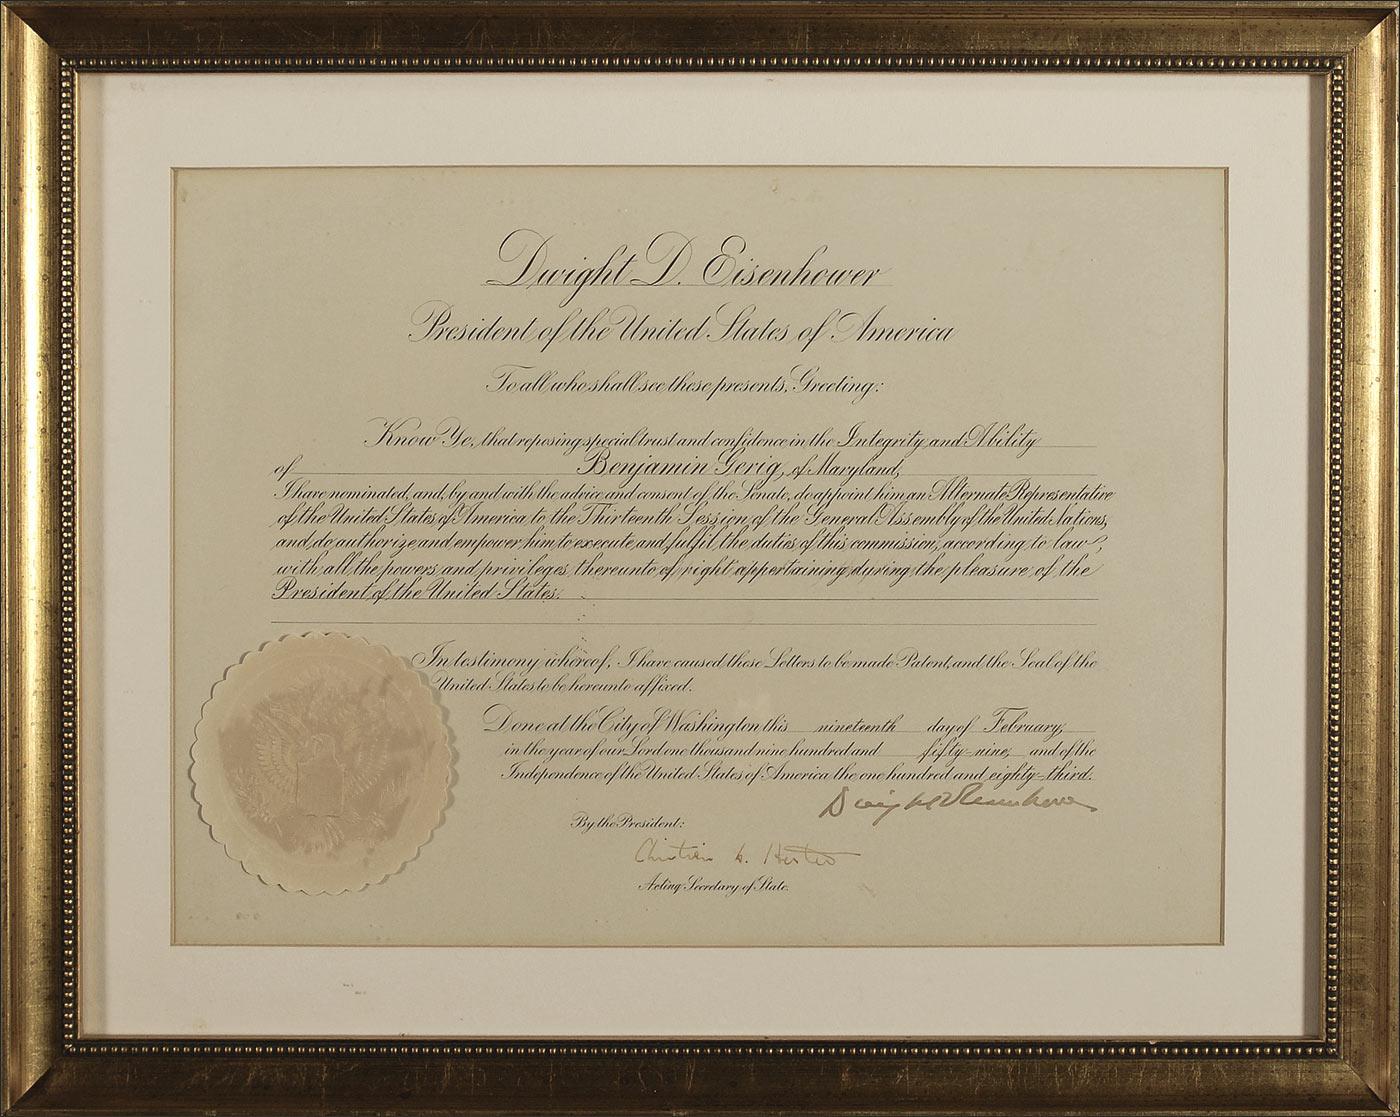 Dwight D. Eisenhower
President of the United States of America
To all who shall see these presents, Greeting:
Know Ye, that reposing special trust and confidence in the Integrity and Ability
of Benjamin Gerig, of Maryland,
I have nominated, and, by and with the advice and consent of the Senate, do appoint him an Alternate Representative
of the United States of America to the Thirteenth Session of the General Assembly of the United Nations,
and do authorize and empower him to execute and fulfil the duties of this commission, according to law,
with all the powers and privileges thereunto of right appertaining during the pleasure of the
President of the United States.
In testimony whereof, I have caused these Letters to be made Patent, and the Seal of the
United States to be hereunto affixed.
Done at the City of Washington this nineteenth day of February,
in the year of our Lord one thousand nine hundred and fifty-nine, and of the
Independence of the United States of America the one hundred and eighty-third.
Dwight D Eisenhower
By the President:
Christian A. Herter
Acting Secretary of State.